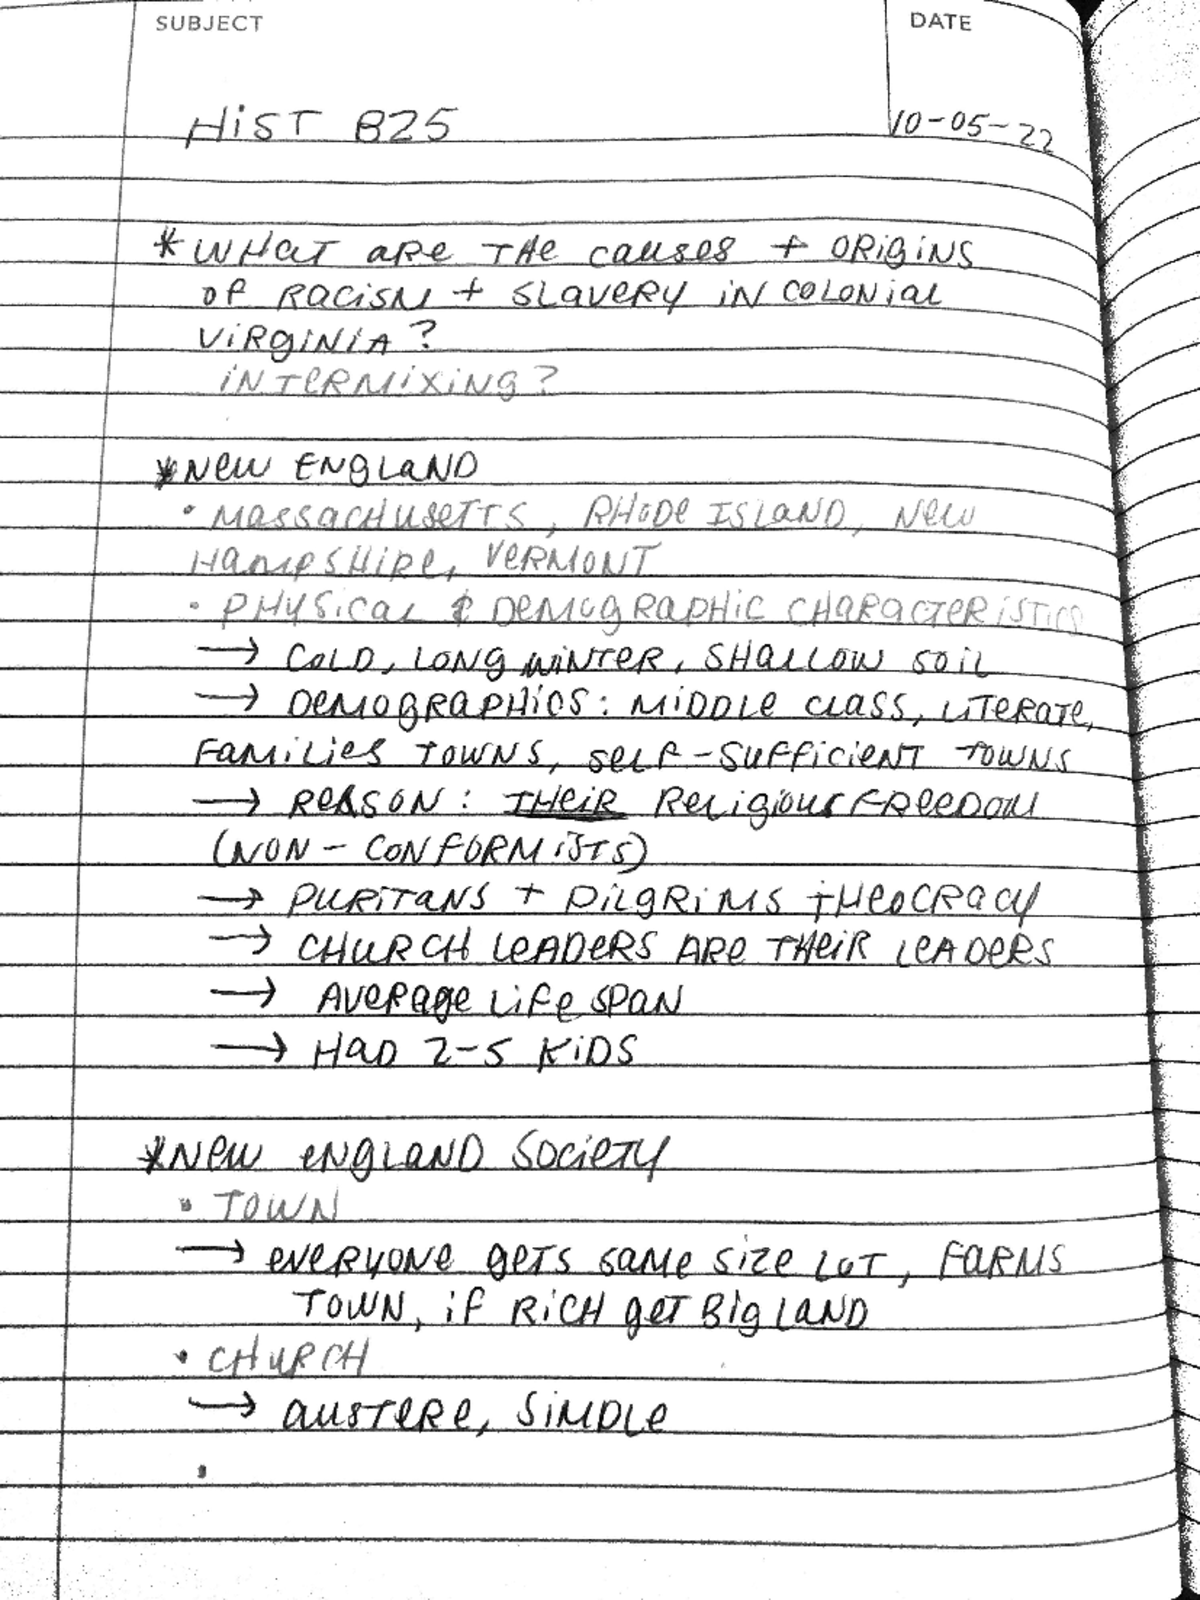 SUBJECT
DATE
HIST B25
10-05-22
* WHAT ARE THE CAUSES + ORIGINS
OF RACISM + SLAVERY IN COLONIAL
VIRGINIA?
INTERMIXING?
* NEW ENGLAND
• MASSACHUSETTS, RHODE ISLAND, NEW
HAMPSHIRE, VERMONT
• PHYSICAL & DEMOGRAPHIC CHARACTERISTICS
→ COLD, LONG WINTER, SHALLOW SOIL
→ DEMOGRAPHICS: MIDDLE CLASS, LITERATE,
FAMILIES TOWNS, SELF-SUFFICIENT TOWNS
→ REASON: THEIR RELIGIOUS FREEDOM
(NON-CONFORMISTS)
→ PURITANS + PILGRIMS THEOCRACY
→ CHURCH LEADERS ARE THEIR LEADERS
→ AVERAGE LIFE SPAN
→ HAD 2-5 KIDS
* NEW ENGLAND SOCIETY
• TOWN
→ EVERYONE GETS SAME SIZE LOT, FARMS
TOWN, IF RICH GET BIG LAND
• CHURCH
→ AUSTERE, SIMPLE
•